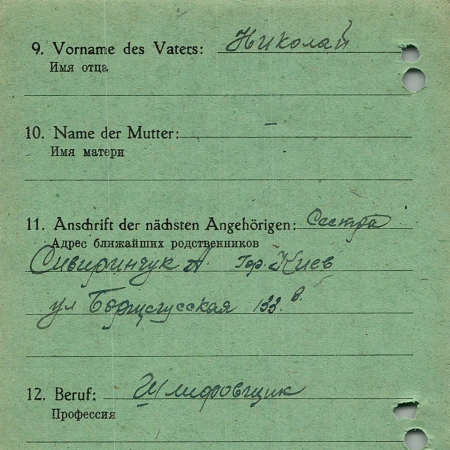 9. Vorname des Vaters: Николай
Имя отца
10. Name der Mutter:
Имя матери
11. Anschrift der nächsten Angehörigen: Сестра
Адрес ближайших родственников
Сивиринчук А Гор. Киев
ул 133 в.
12. Beruf: Шлифовщик
Профессия